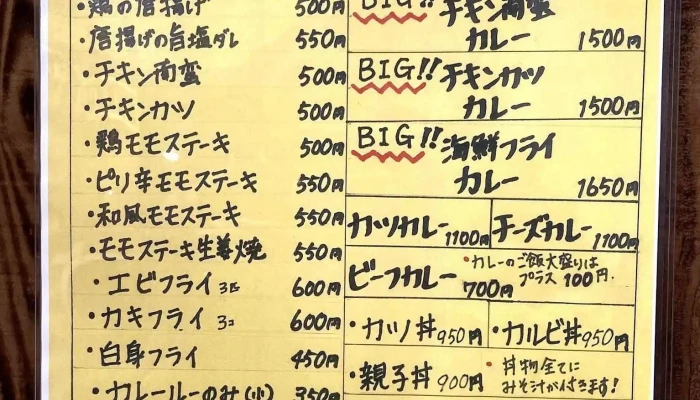 ・鶏の唐揚げ 500円
・唐揚げの旨塩ダレ 550円
・チキン南蛮 500円
・チキンカツ 500円
・鶏モモステーキ 500円
・ピリ辛モモステーキ 550円
・和風モモステーキ 550円
・モモステーキ生姜焼 550円
・エビフライ 3匹 600円
・カキフライ 3コ 600円
・白身フライ 450円
・カレールーのみ(小) 350円
BIG!! チキン南蛮
カレー 1500円
BIG!! チキンカツ
カレー 1500円
BIG!! 海鮮フライ
カレー 1650円
カツカレー 1100円
チーズカレー 1100円
ビーフカレー 700円
・カレーのご飯大盛りは
プラス 100円.
・カツ丼 950円
・カルビ丼 950円
・親子丼 900円
・丼物全てに
みそ汁が付きます!